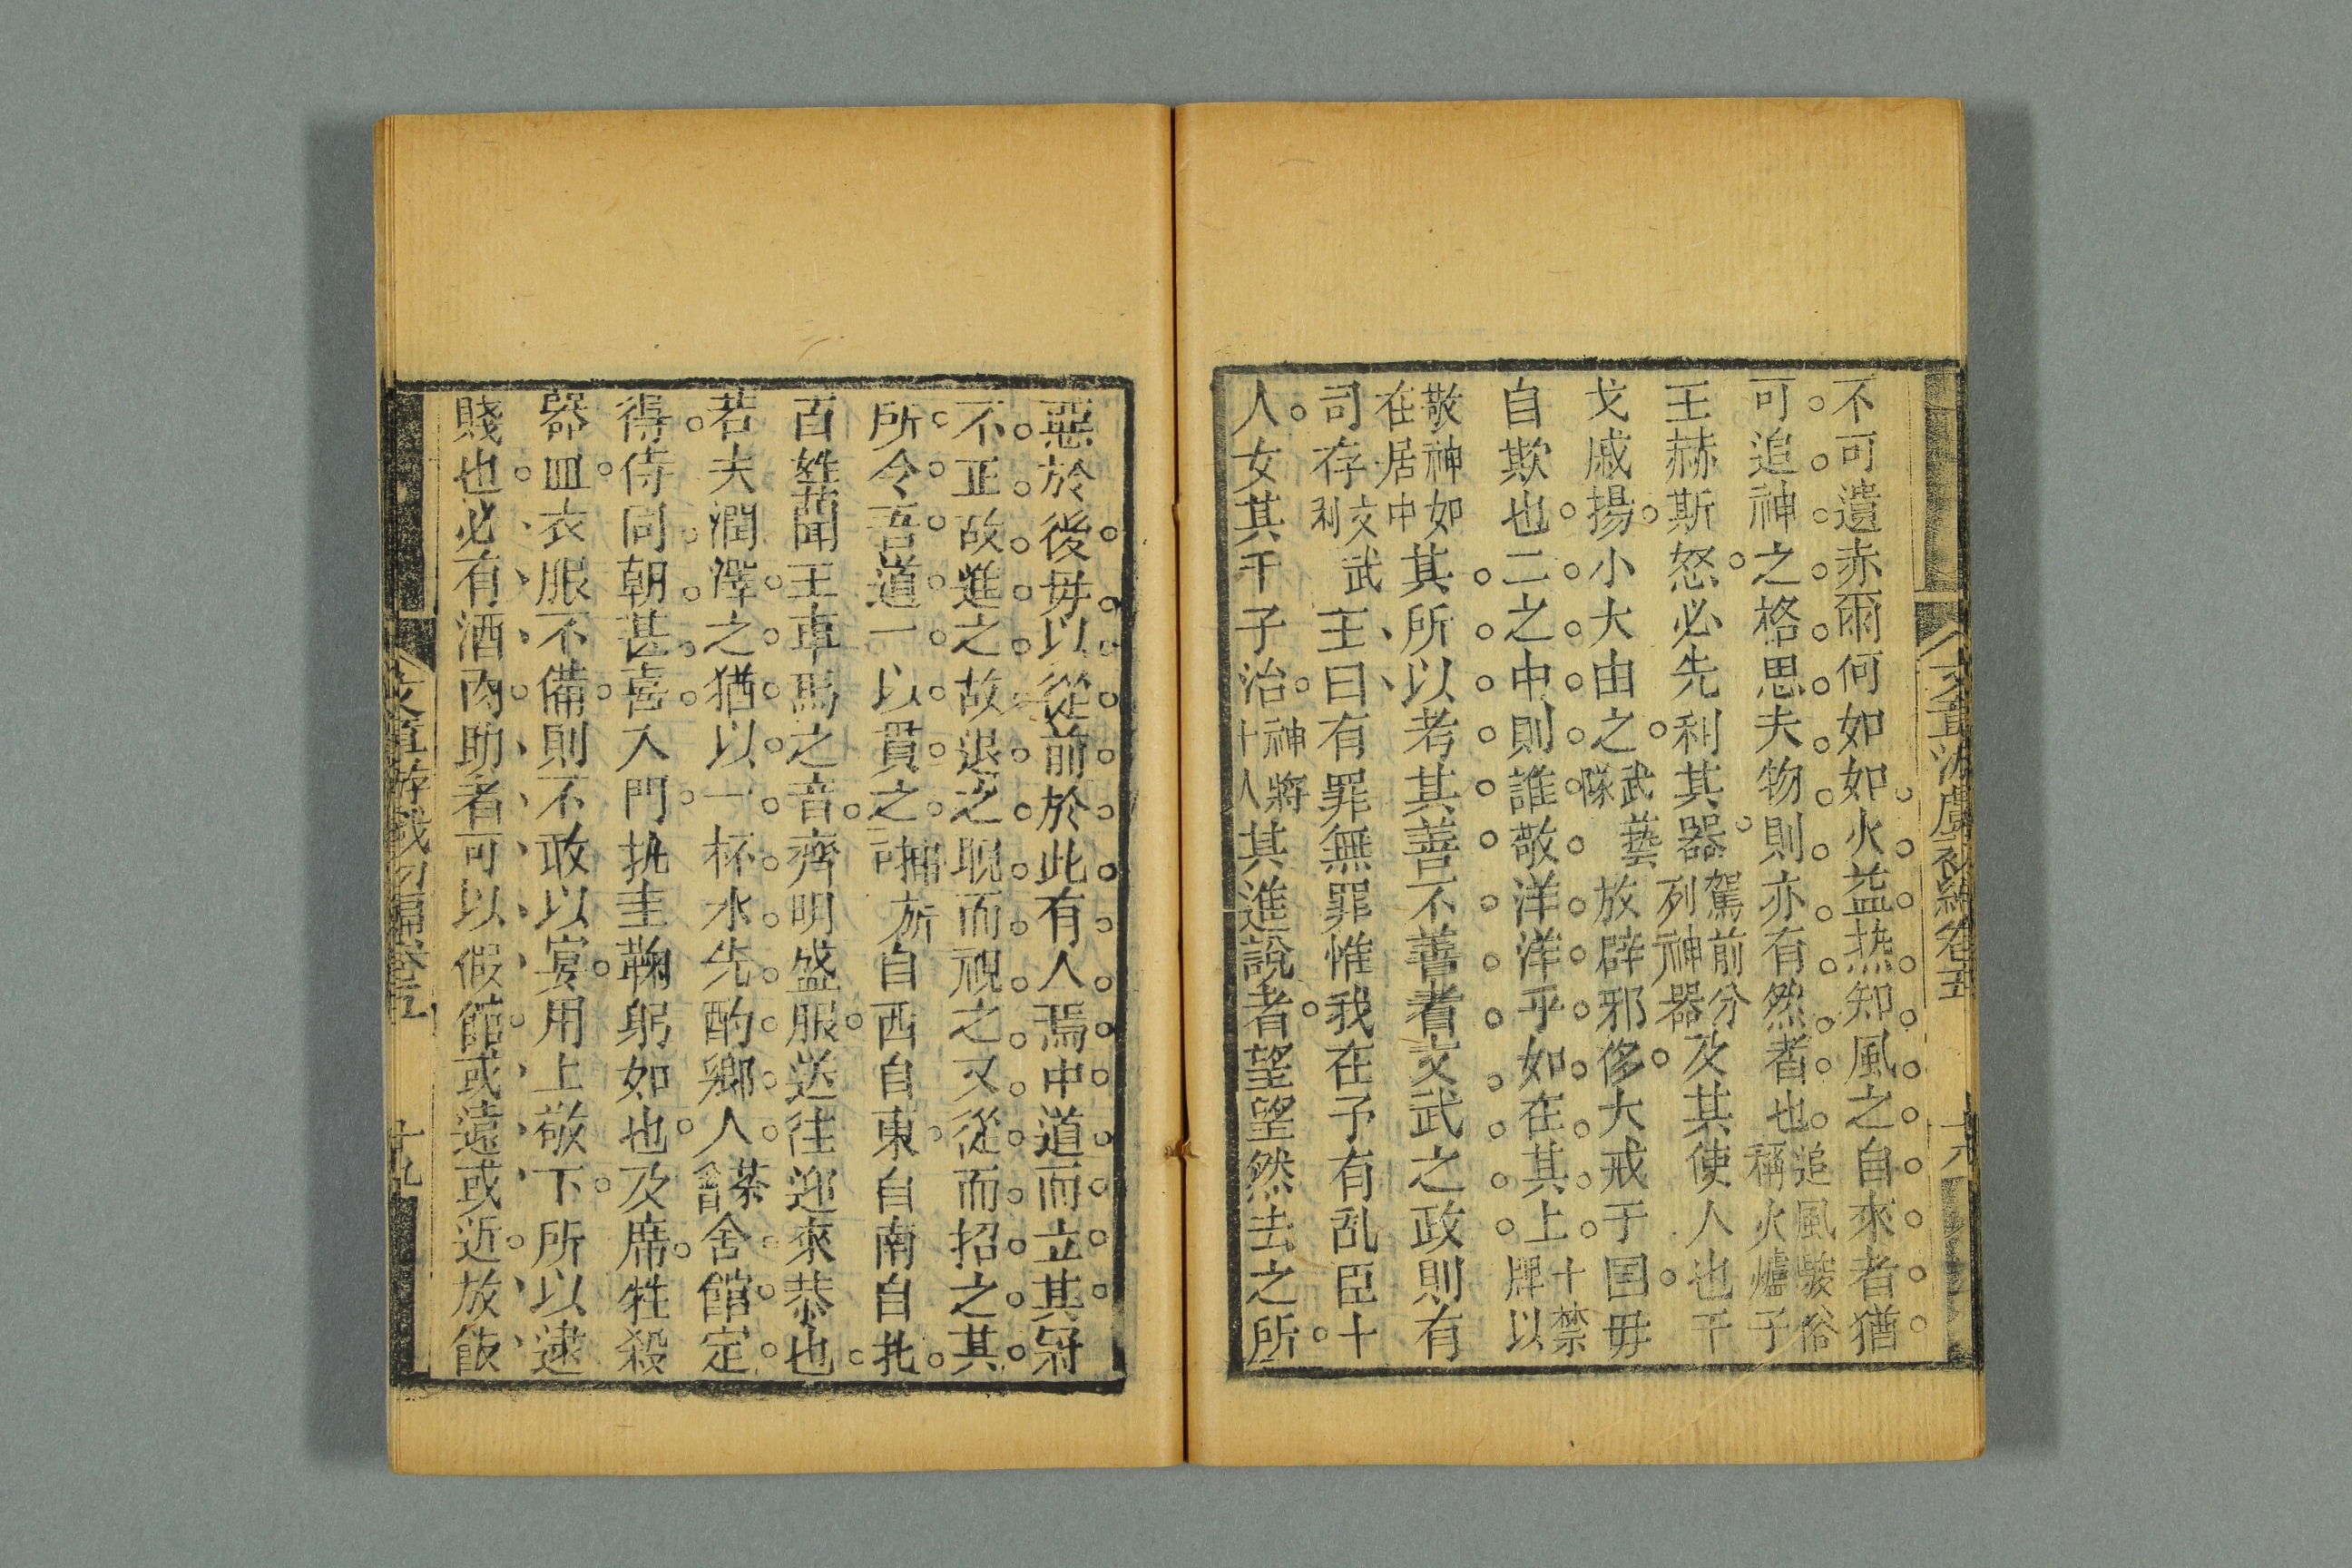 不可遺赤爾何如如火益热知風之自來者猶
可追神之格思夫物則亦有然者也追風駿俗稱火爐子
王赫斯怒必先利其器駕前分列神器及其使人也千
戈戚揚小大由之武藝隊放辟邪侈大戒于国毋
自欺也二之中則誰敬洋洋乎如在其上十禁牌以
敬神如在居中其所以考其善不善者文武之政則有
司存文武利王曰有罪無罪惟我在予有乱臣十
人女其干子治神將十人其進說者望望然去之所
惡於後毋以從前於此有人焉中道而立其冠
不正故進之故退之覗而視之又從而招之其
所令吾道一以貫之自西自東自南自北
百姓聞王車馬之音齊明盛服送往迎來恭也
若夫潤澤之猶以一杯水先酌鄉人茶舍館定
得侍同朝甚喜入門执圭鞠躬如也及席牲殺
器皿衣服不備則不敢以宴用上敬下所以逮
賤也必有酒肉助者可以假館或遠或近放飯
十九